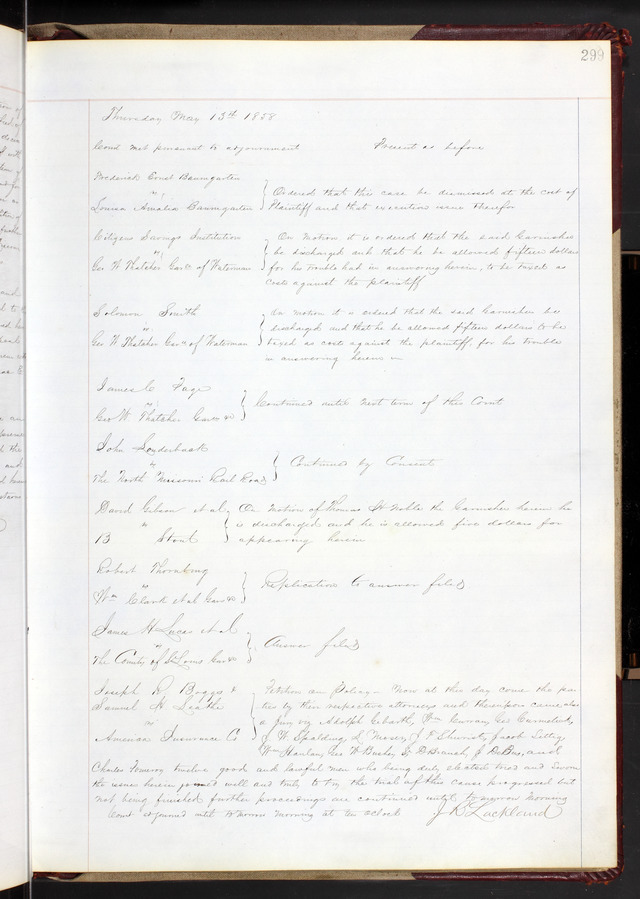 299
Thursday May 13th 1858
Court met pursuant to adjournment Present as before
Frederick Ernst Baumgarten
vs
Louisa Amalia Baumgarten
Ordered that this case be dismissed at the cost of
Plaintiff and that execution issue therefor
Citizens Savings Institution
vs
Geo W Thatcher Garn of Waterman
On motion it is ordered that the said Garnishee
be discharged and that he be allowed fifteen dollars
for his trouble had in answering herein, to be taxed as
costs against the plaintiff
Solomon Smith
vs
Geo W Thatcher Garn of Waterman
On motion it is ordered that the said Garnishee be
discharged and that he be allowed fifteen dollars to be
taxed as costs against the plaintiff, for his trouble
in answering herein
James C Page
vs
Geo W Thatcher Garn &c
Continued until next term of this Court
John
vs
The North Missouri Rail Road
Continued by Consent
David Gibson et al
vs
B Stout
On motion of Thomas H Noble the Garnishee herein he
is discharged and he is allowed five dollars for
appearing herein
Robert Thornburg
vs
Wm Clark et al Garn &c
Replication to answer filed
James H Lucas et al
vs
The County of St Louis Garn
Answer filed
Joseph R Boggs &
Samuel H Leathe
vs
American Insurance Co
Petition on Policy - Now at this day come the par
ties by their respective attorneys and thereupon came also
a Jury viz Adolph Wm Curran, Geo
J W Spalding, L J P Jacob
Wm Harlan, Geo W D Branch, and
Charles Pomeroy twelve good and lawful men who being duly elected tried and sworn
the issues herein joined well and truly to try the trial of this cause progressed but
not being finished further proceedings are continued until to morrow morning
Court adjourned until to morrow morning at ten oclock J R Lackland